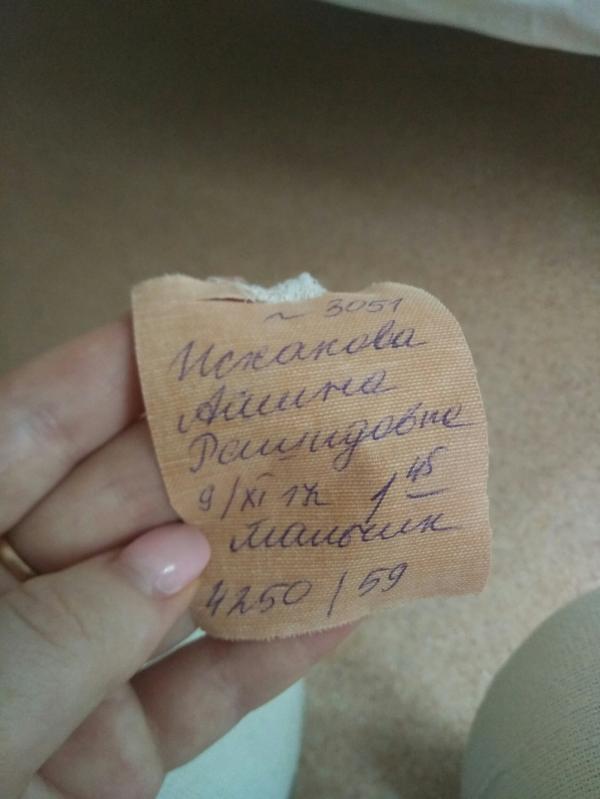 ~ 3051
Исхакова
Алина
Рашидовна
9/XI 17г 1 45
мальчик
4250 / 59